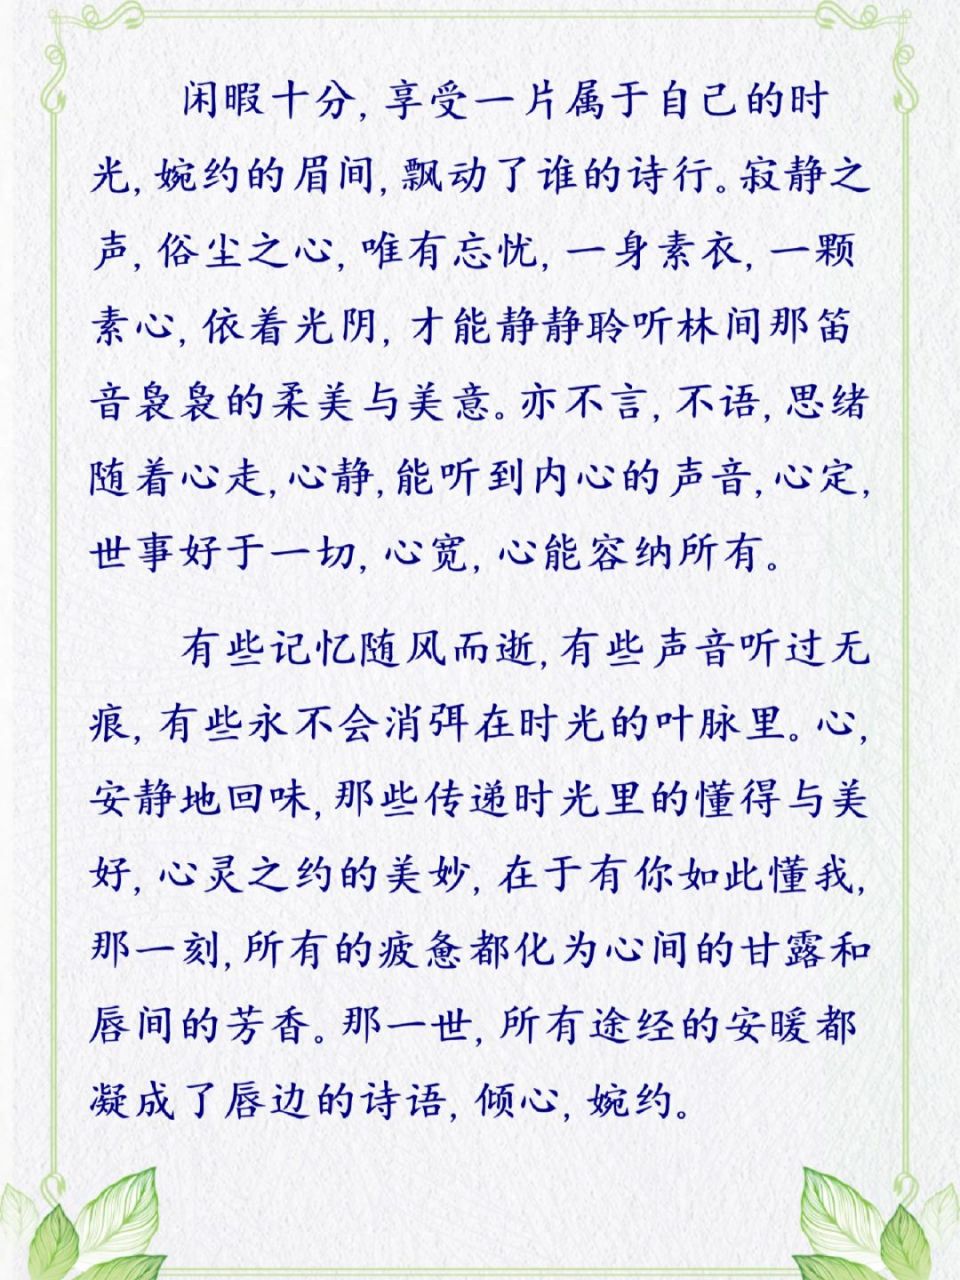 闲暇十分,享受一片属于自己的时
光,婉约的眉间,飘动了谁的诗行。寂静之
声,俗尘之心,唯有忘忧,一身素衣,一颗
素心,依着光阴,才能静静聆听林间那笛
音袅袅的柔美与美意。亦不言,不语,思绪
随着心走,心静,能听到内心的声音,心定,
世事好于一切,心宽,心能容纳所有。
有些记忆随风而逝,有些声音听过无
痕,有些永不会消弭在时光的叶脉里。心,
安静地回味,那些传递时光里的懂得与美
好,心灵之约的美妙,在于有你如此懂我,
那一刻,所有的疲惫都化为心间的甘露和
唇间的芳香。那一世,所有途经的安暖都
凝成了唇边的诗语,倾心,婉约。